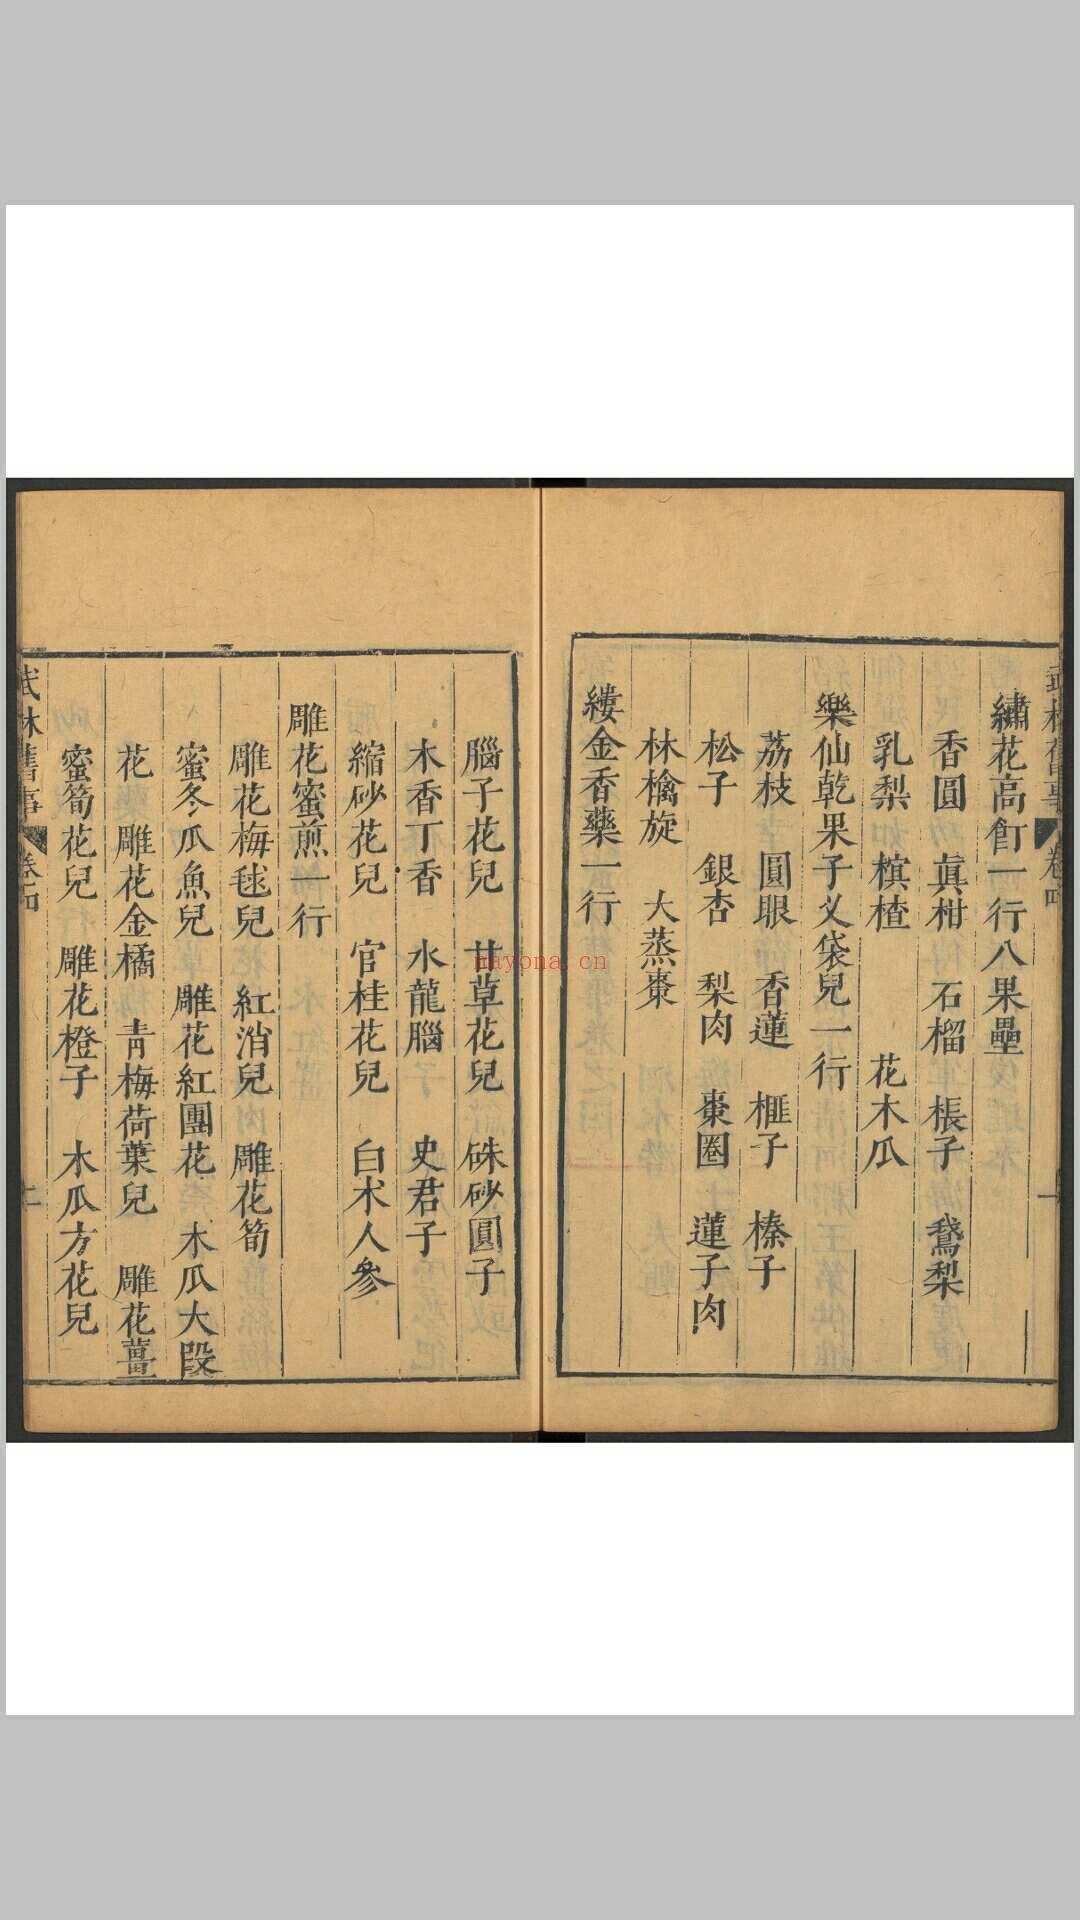 繡花高飣一行八果壘
香圓 眞柑 石榴 棖子 鵞梨
乳梨 榠楂 花木瓜
樂仙乾果子叉袋兒一行
荔枝 圓眼 香蓮 榧子 榛子
松子 銀杏 梨肉 棗圈 蓮子肉
林檎旋 大蒸棗
縷金香藥一行
腦子花兒 甘草花兒 硃砂圓子
木香丁香 水龍腦 史君子
縮砂花兒 官桂花兒 白朮人參
雕花蜜煎一行
雕花梅毬兒 紅消兒 雕花筍
蜜冬瓜魚兒 雕花紅團花 木瓜大段
花 雕花金橘 靑梅荷葉兒 雕花薑
蜜筍花兒 雕花橙子 木瓜方花兒
武林舊事 卷四 二
nayona.cn